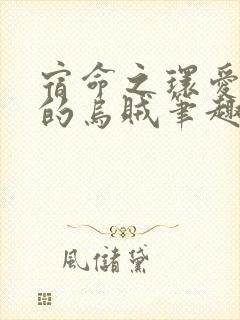 宿命之環愛
的烏賊筆趣
風儲黛